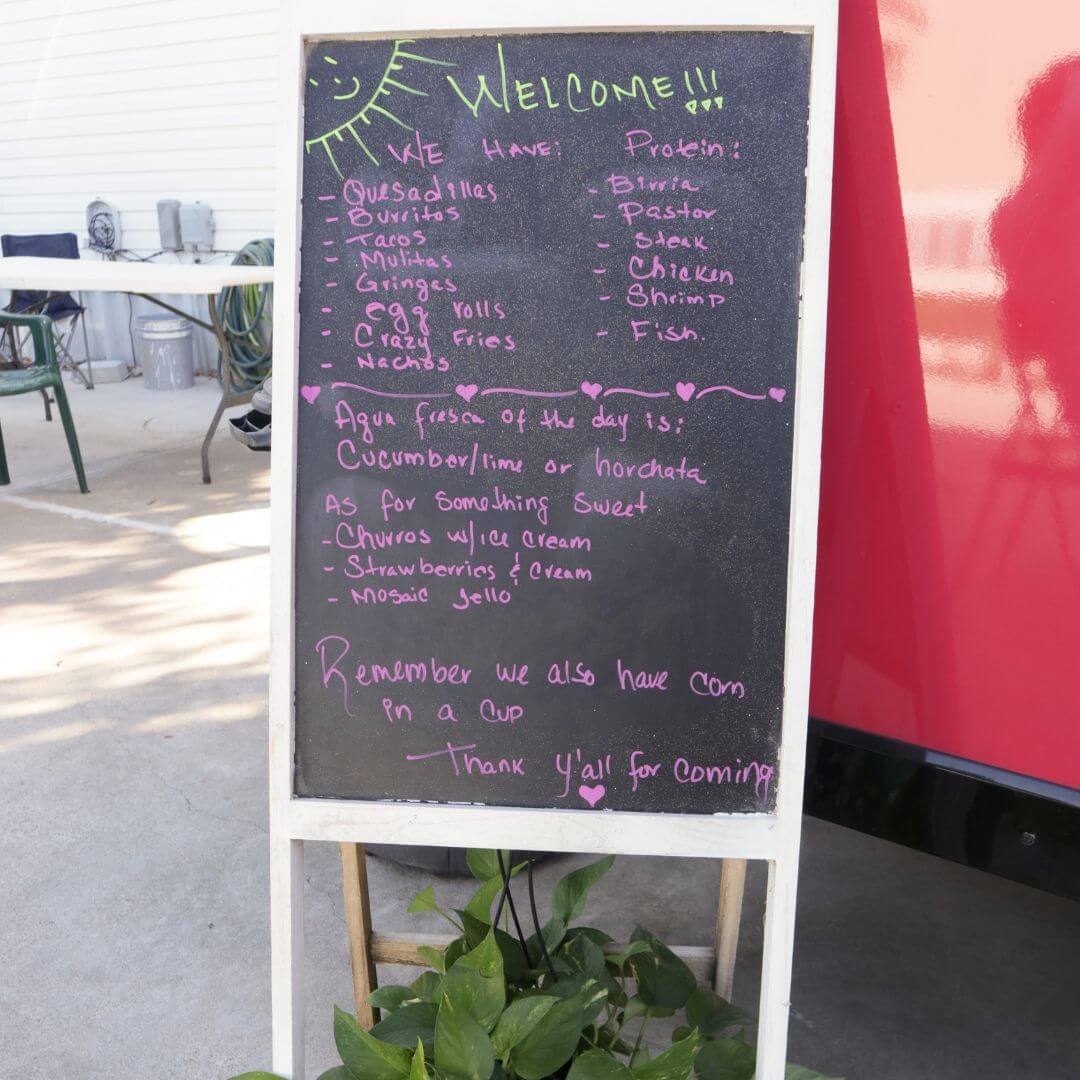 WELCOME!!!
WE HAVE:
- Quesadillas
- Burritos
- Tacos
- Mulitas
- Gringas
- egg rolls
- Crazy Fries
- Nachos
Protein:
- Birria
- Pastor
- Steak
- Chicken
- Shrimp
- Fish.
Agua fresca of the day is:
Cucumber/lime or horchata
As for something sweet
- Churros w/ice cream
- Strawberries & Cream
- Mosaic Jello
Remember we also have corn
in a cup
Thank y'all for coming